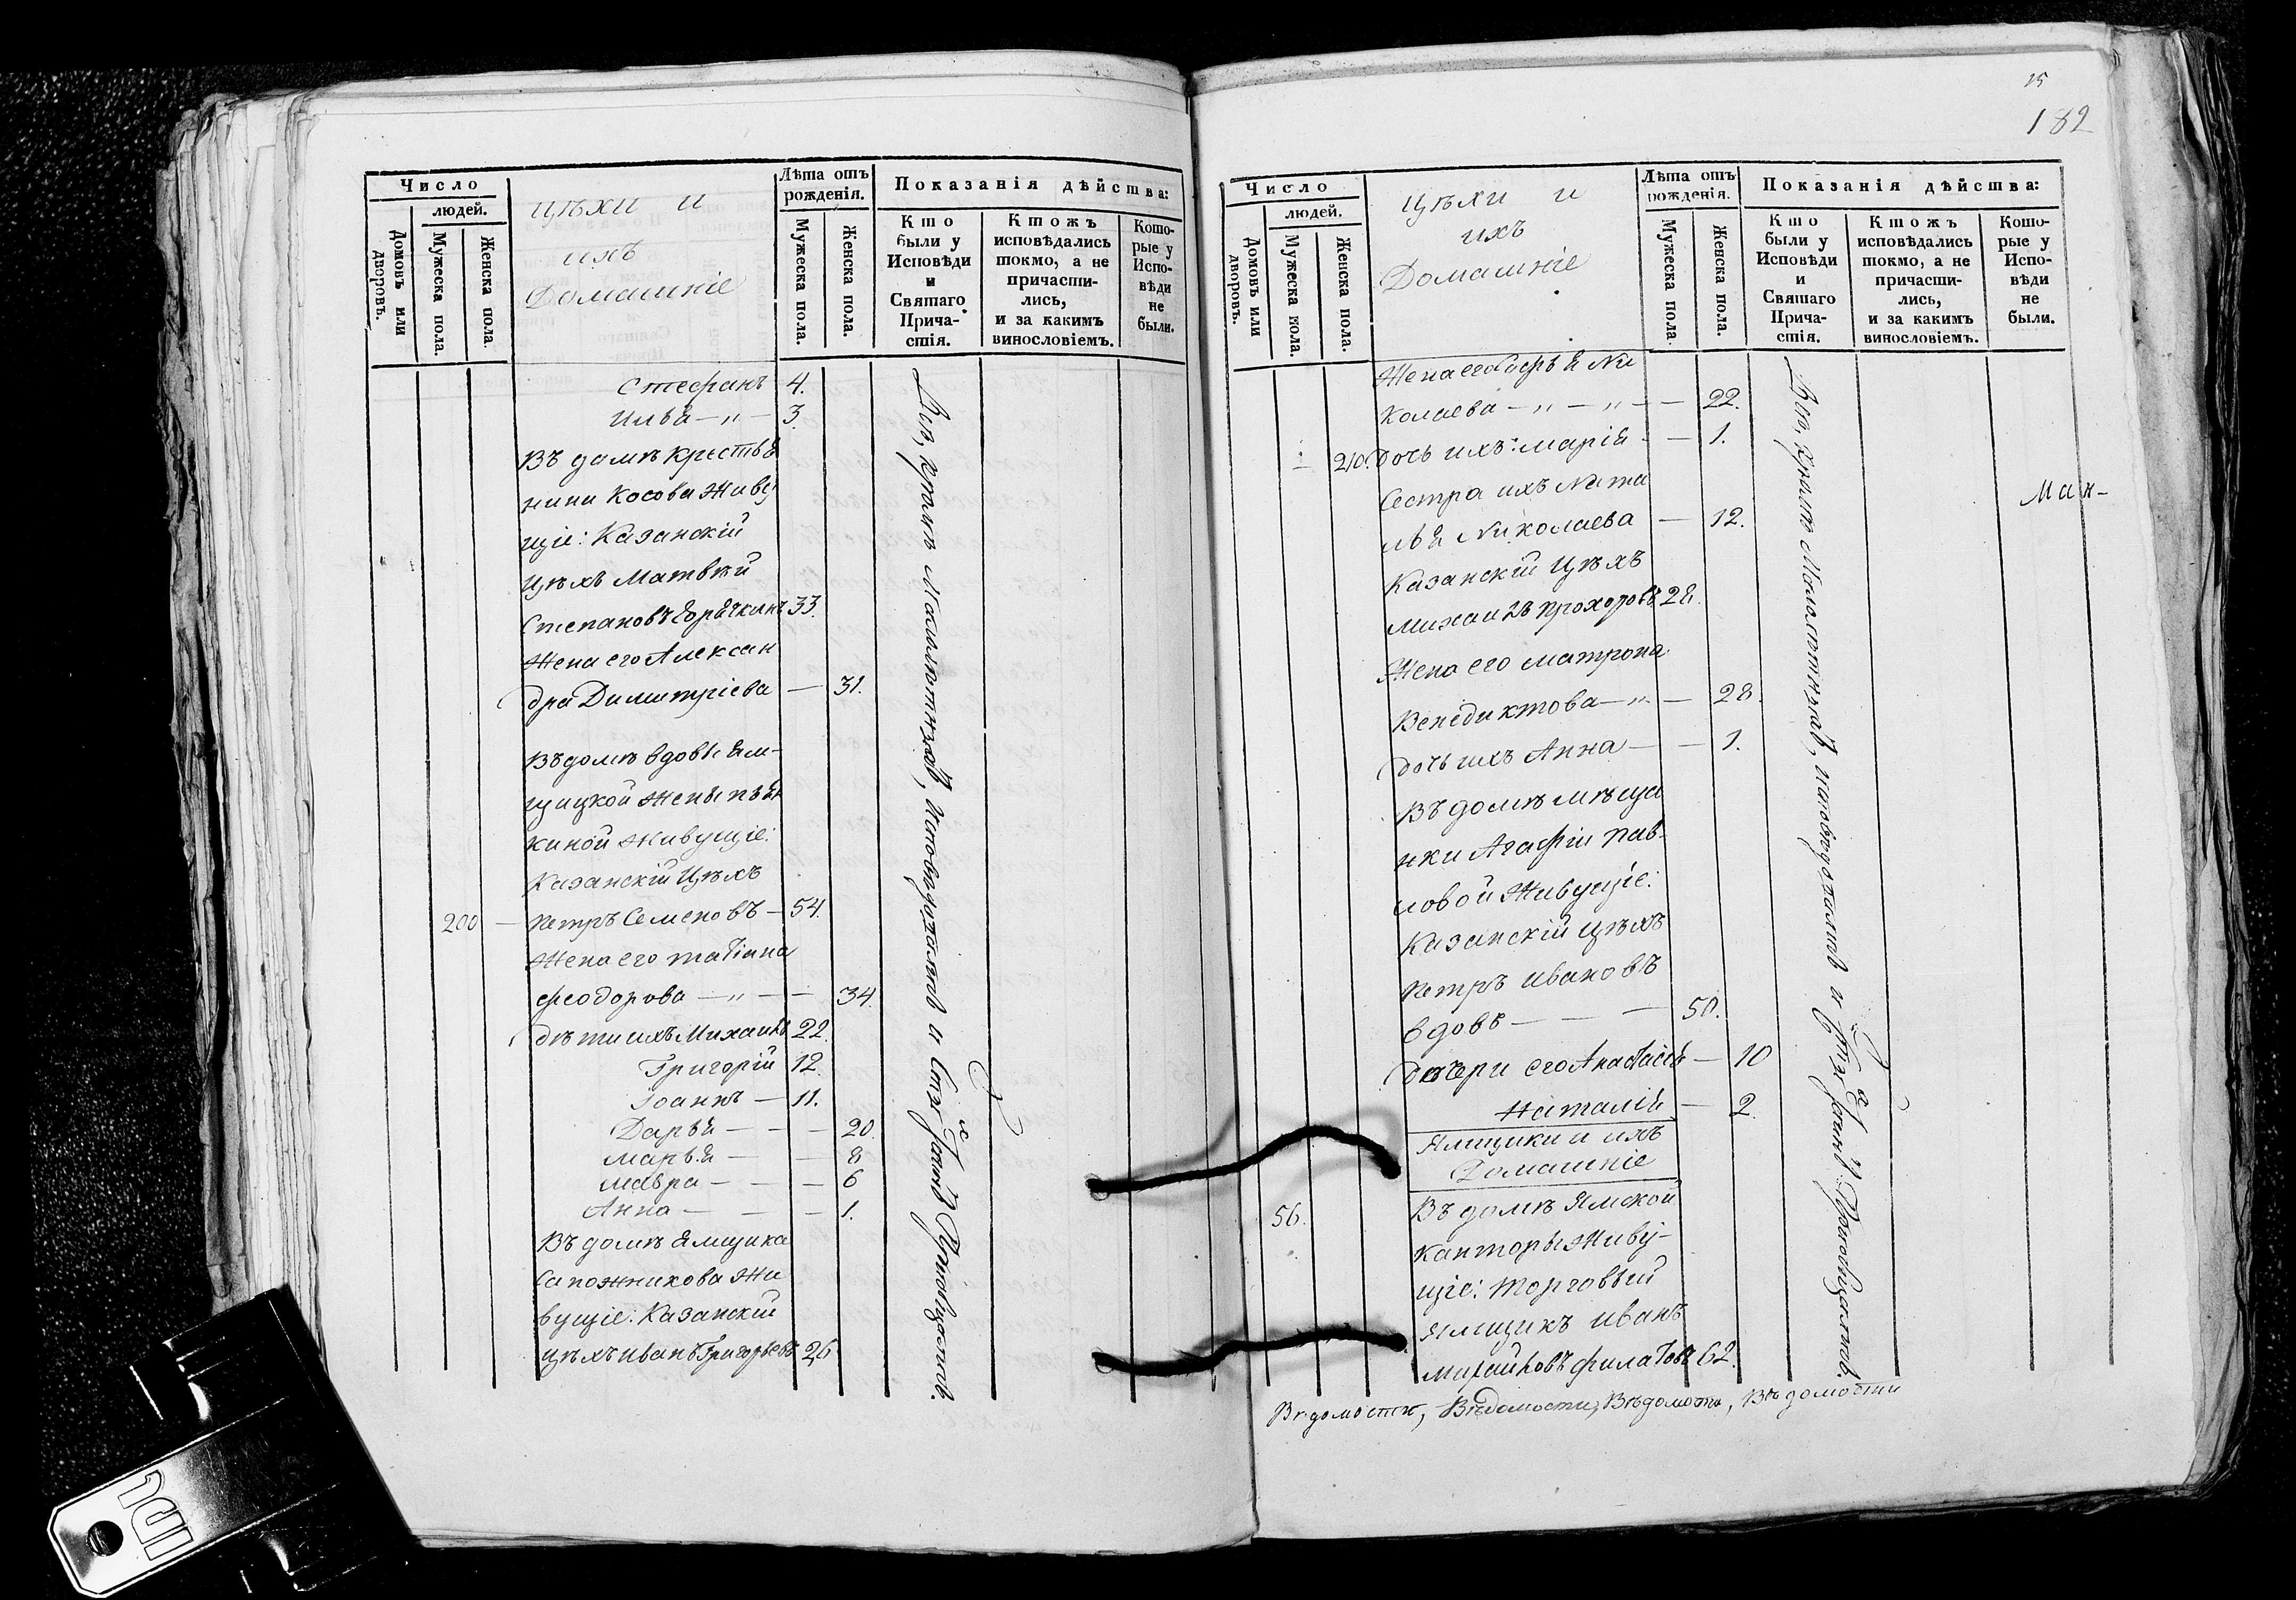 Число
людей.
Домовъ или дворовъ.
Мужеска пола.
Женска пола.
Цѣхи и
ихъ
Домашніе
Лѣта отъ
рожденія.
Мужеска пола.
Женска пола.
Показанія дѣйства:
Кто
были у
Исповѣди
и
Святаго
Прича-
стія.
Ктожъ
исповѣдались
токмо, а не
причасти-
лись,
и за какимъ
винословіемъ.
Кото-
рые у
Испо-
вѣди
не
были.
Стефанъ 4.
Илья — „ — 3.
Въ домѣ крестья
нина Косова живу
щіе: Казанскій
Цѣхъ Матвѣй
Степановъ 33.
Жена его Алексан
дра Димитріева — 31.
Въ домѣ вдовы ям-
щицкой жены
киной живущіе:
Казанскій Цѣхъ
200 — Петръ Семеновъ — 54.
Жена его татіана
феодорова — „ — — 34.
дѣти ихъ Михаилъ 22.
Григорій 12.
Іоаннъ — 11.
Дарья — — — 20.
Марья — — 8
Мавра — — — 6
Анна — — — 1.
Въ домѣ ямщика
Сапожникова жи
вущіе: Казанскій
цѣхъ иванъ Григорьевъ 26
Всѣ, кромѣ Малолѣтныхъ, исповѣдались и Стыхъ Таинъ Пріобщались.
15
182
Число
людей.
Домовъ или дворовъ.
Мужеска пола.
Женска пола.
Цѣхи и
ихъ
Домашніе
Лѣта отъ
рожденія.
Мужеска пола
Женска пола.
Показанія дѣйства:
Кто
были у
Исповѣди
и
Святаго
Прича-
стія.
Ктожъ
исповѣдались
токмо, а не
причасти-
лись,
и за какимъ
винословіемъ.
Кото-
рые у
Испо-
вѣди
не
были.
Жена его Софья Ни
колаева — „ — „ — — 22.
210. Дочь ихъ: марія — — 1.
Сестра ихъ Ната
лья Николаева — 12.
Казанскій Цѣхъ
михаилъ Прохоровъ 28.
Жена его матрона
Венедиктова — „ — 28.
дочь ихъ Анна — — 1.
Въ домѣ мѣща
нки Агафіи Пав-
ловой живущіе:
Казанскій цѣхъ
Петръ ивановъ
вдовъ — — — 50.
Дочери его Анастасія — 10
Наталія — 2.
Ямщики и ихъ
Домашніе
56. Въ домѣ Ямской
канторы живу-
щіе: торговый
Ямщикъ иванъ
михайловъ филатовъ 62.
Всѣ, кромѣ Малолѣтныхъ, исповѣдались и Стыхъ Таинъ Пріобщались.
Ман-
Вѣдомости, Вѣдомости, Вѣдомости, Вѣдомости